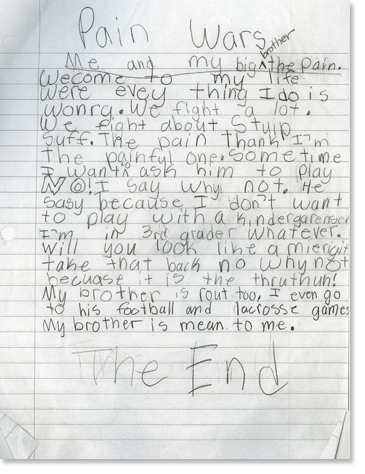 Pain Wars
Me and my big brother the Pain.
Wecome to my life
were evey thing I do is
wonrg. We fight a lot.
We fight about Stuip
Suff. The pain thank I'm
the painful one. Some time
I want ask him to play
NO! I say why not. He
sasy because I don't want
to play with a kindergarenser
I'm in 3rd grader whatever.
will you look like a miergit
take that back no why not
becuase it is the thruthuh!
My brother is rout too, I even go
to his football and lacrosse games
My brother is mean to me.
The End